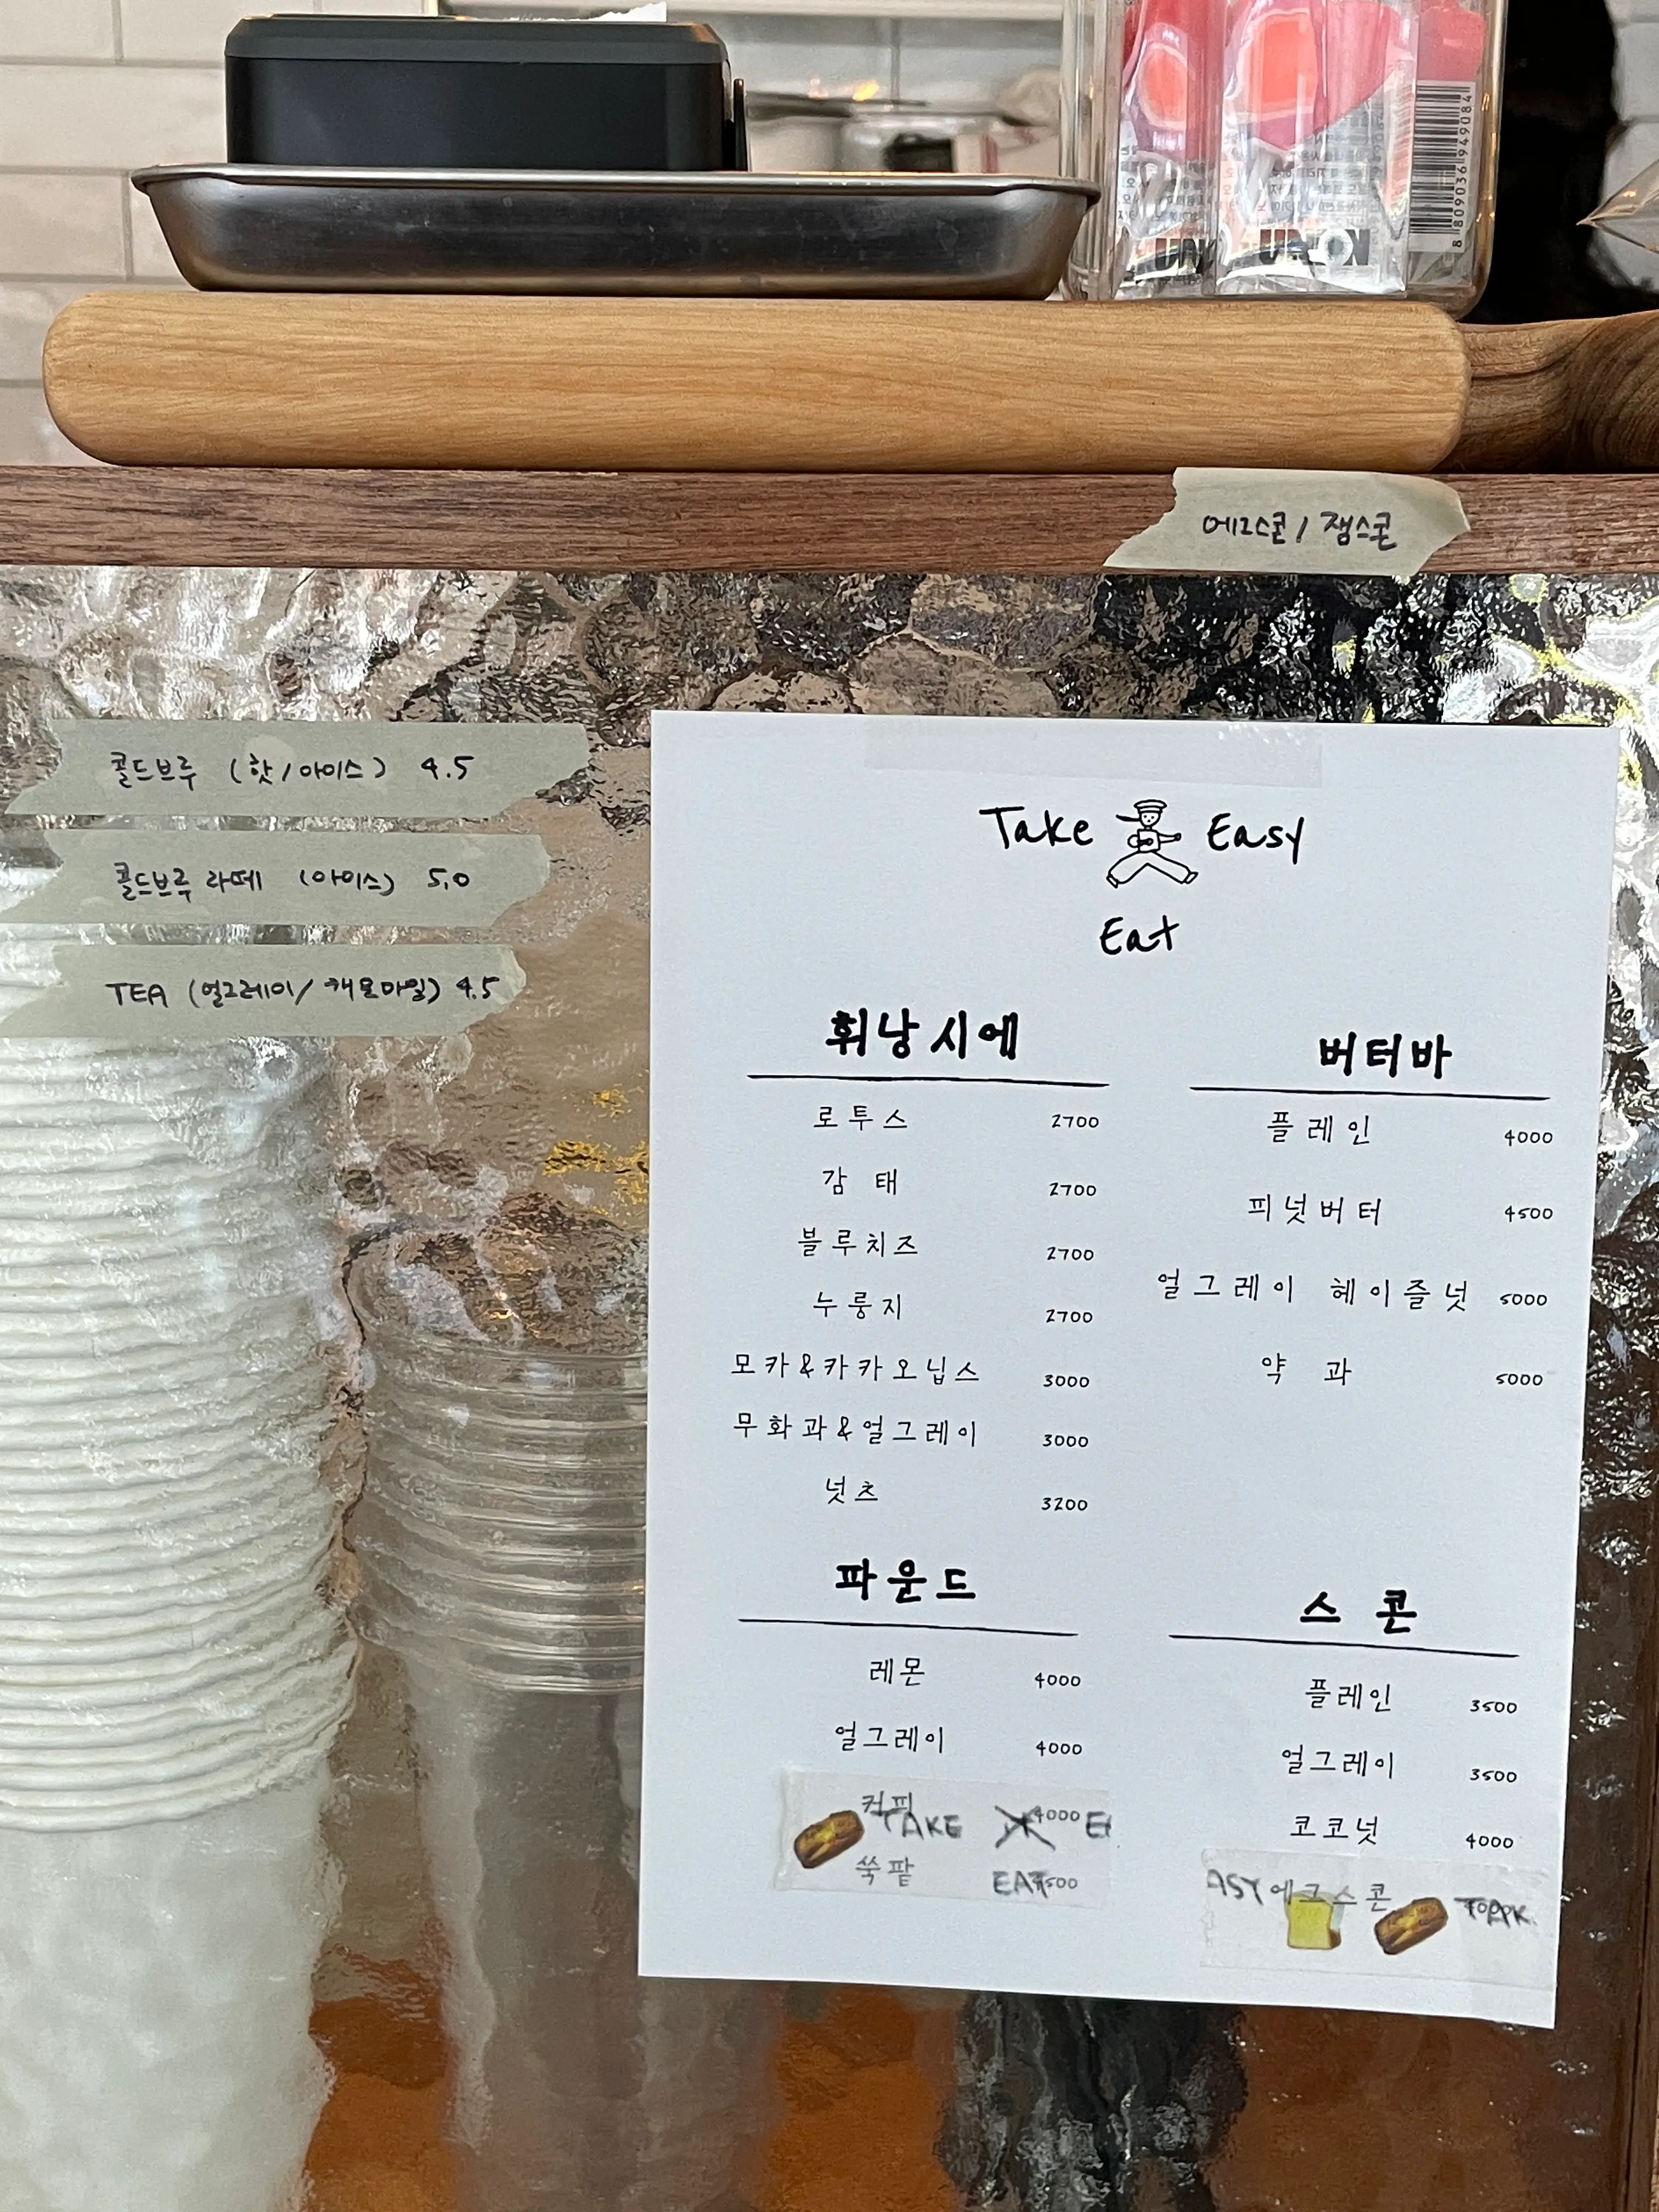 8 809036 949084
에그스콘 / 잼스콘
콜드브루 (핫/아이스) 4.5
콜드브루 라떼 (아이스) 5.0
TEA (얼그레이/캐모마일) 4.5
Take Easy
Eat
휘낭시에
로투스 2700
감태 2700
블루치즈 2700
누룽지 2700
모카&카카오닙스 3000
무화과&얼그레이 3000
넛츠 3200
버터바
플레인 4000
피넛버터 4500
얼그레이 헤이즐넛 5000
약과 5000
파운드
레몬 4000
얼그레이 4000
커피 4000
TAKE
쑥팥
EAT
스콘
플레인 3500
얼그레이 3500
코코넛 4000
ASY 에그스콘